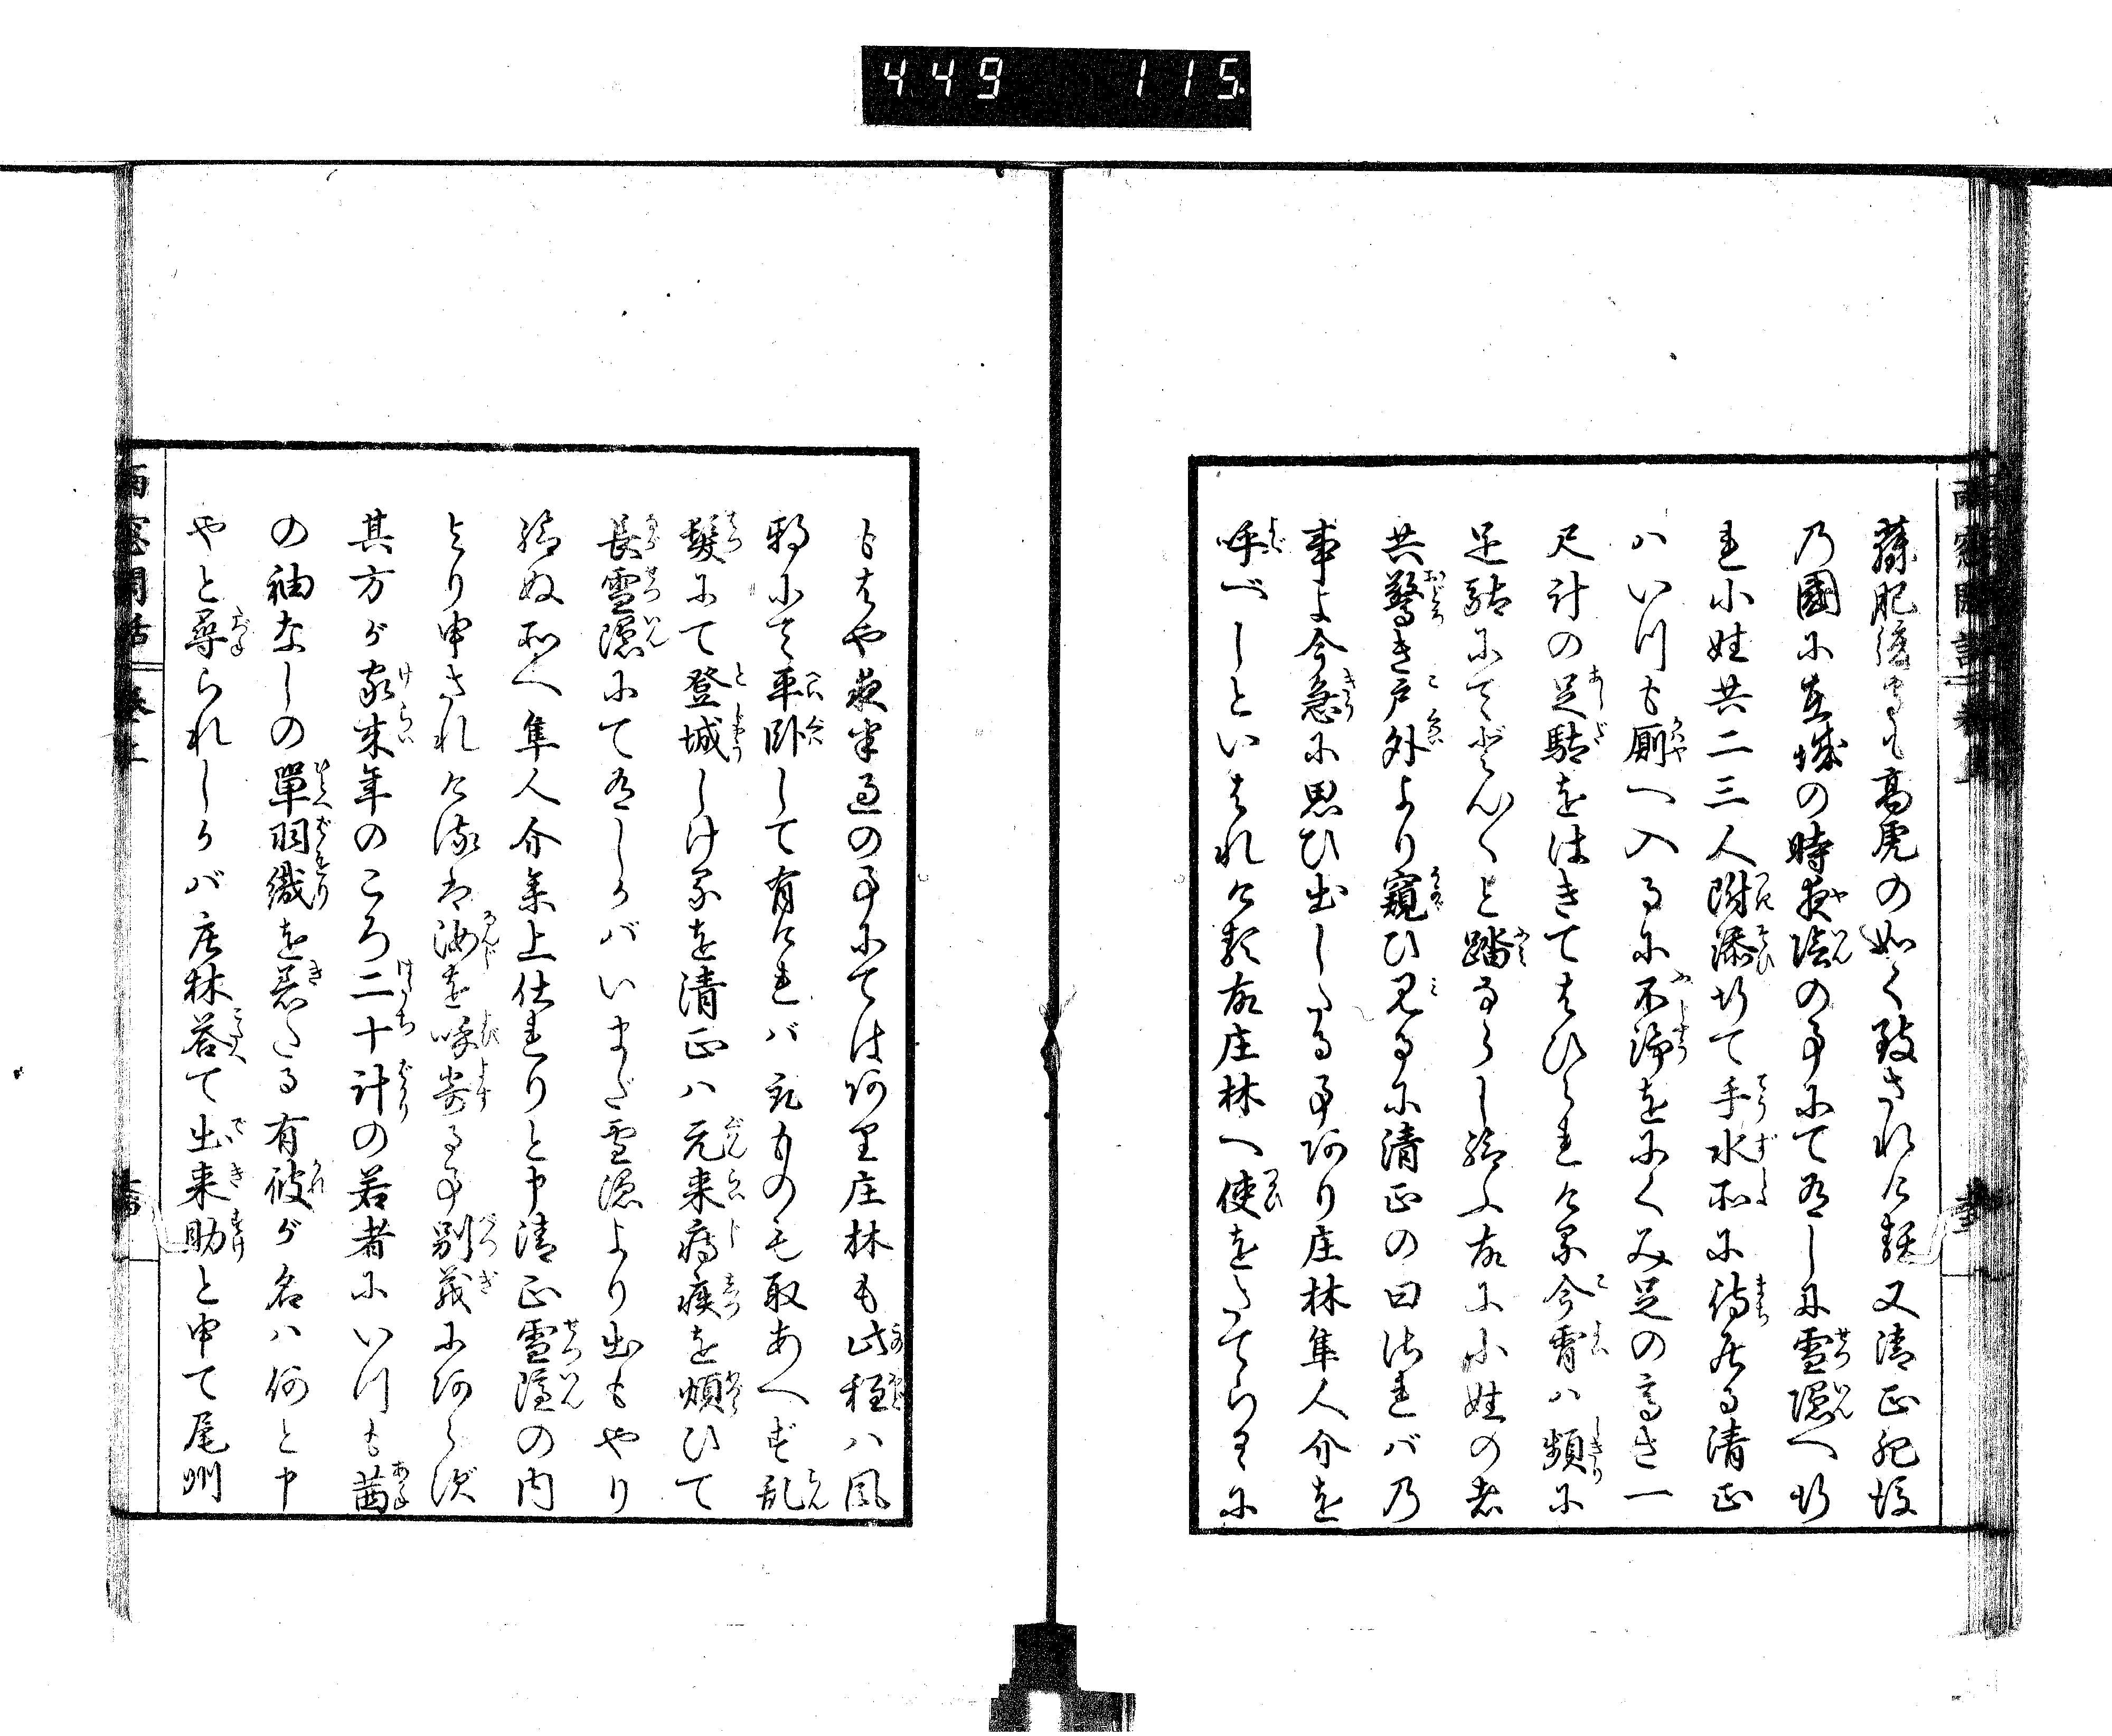 449 115
藤肥後守も高虎の如く致されける又清正肥後
乃國に在城の時夜陰の事にて有しに雪隠へ行
れ小姓共二三人附添行て手水所に待居る清正
ハいつも厠へ入るに不浄をにくみ足の高さ一
尺計の足駄をはきてはひられける今宵ハ頻に
足駄にてどん〳〵と踏ならし給ふ故に小姓の者
共驚き戸外より窺ひ見るに清正の曰されバ乃
事よ今急に思ひ出したる事あり庄林隼人介を
呼べしといはれける故庄林へ使をたてらるに
もはや夜半過の事にてはあり庄林も此程ハ風
邪にて平臥して有けれバ取ものも取あへず乱
髪にて登城しけるを清正ハ元来痔疾を煩ひて
長雪隠にて有しかバいまだ雪隠より出もやり
給ぬ所へ隼人介参上仕れりと申清正雪隠の内
より申されける汝を呼寄る事別義にあらず
其方が家来年のころ二十計の若者にいつも茜
の袖なしの單羽織を着たる有彼が名ハ何と申
やと尋られしかバ庄林答て出来助と申て尾州
雨窓閑話 巻上